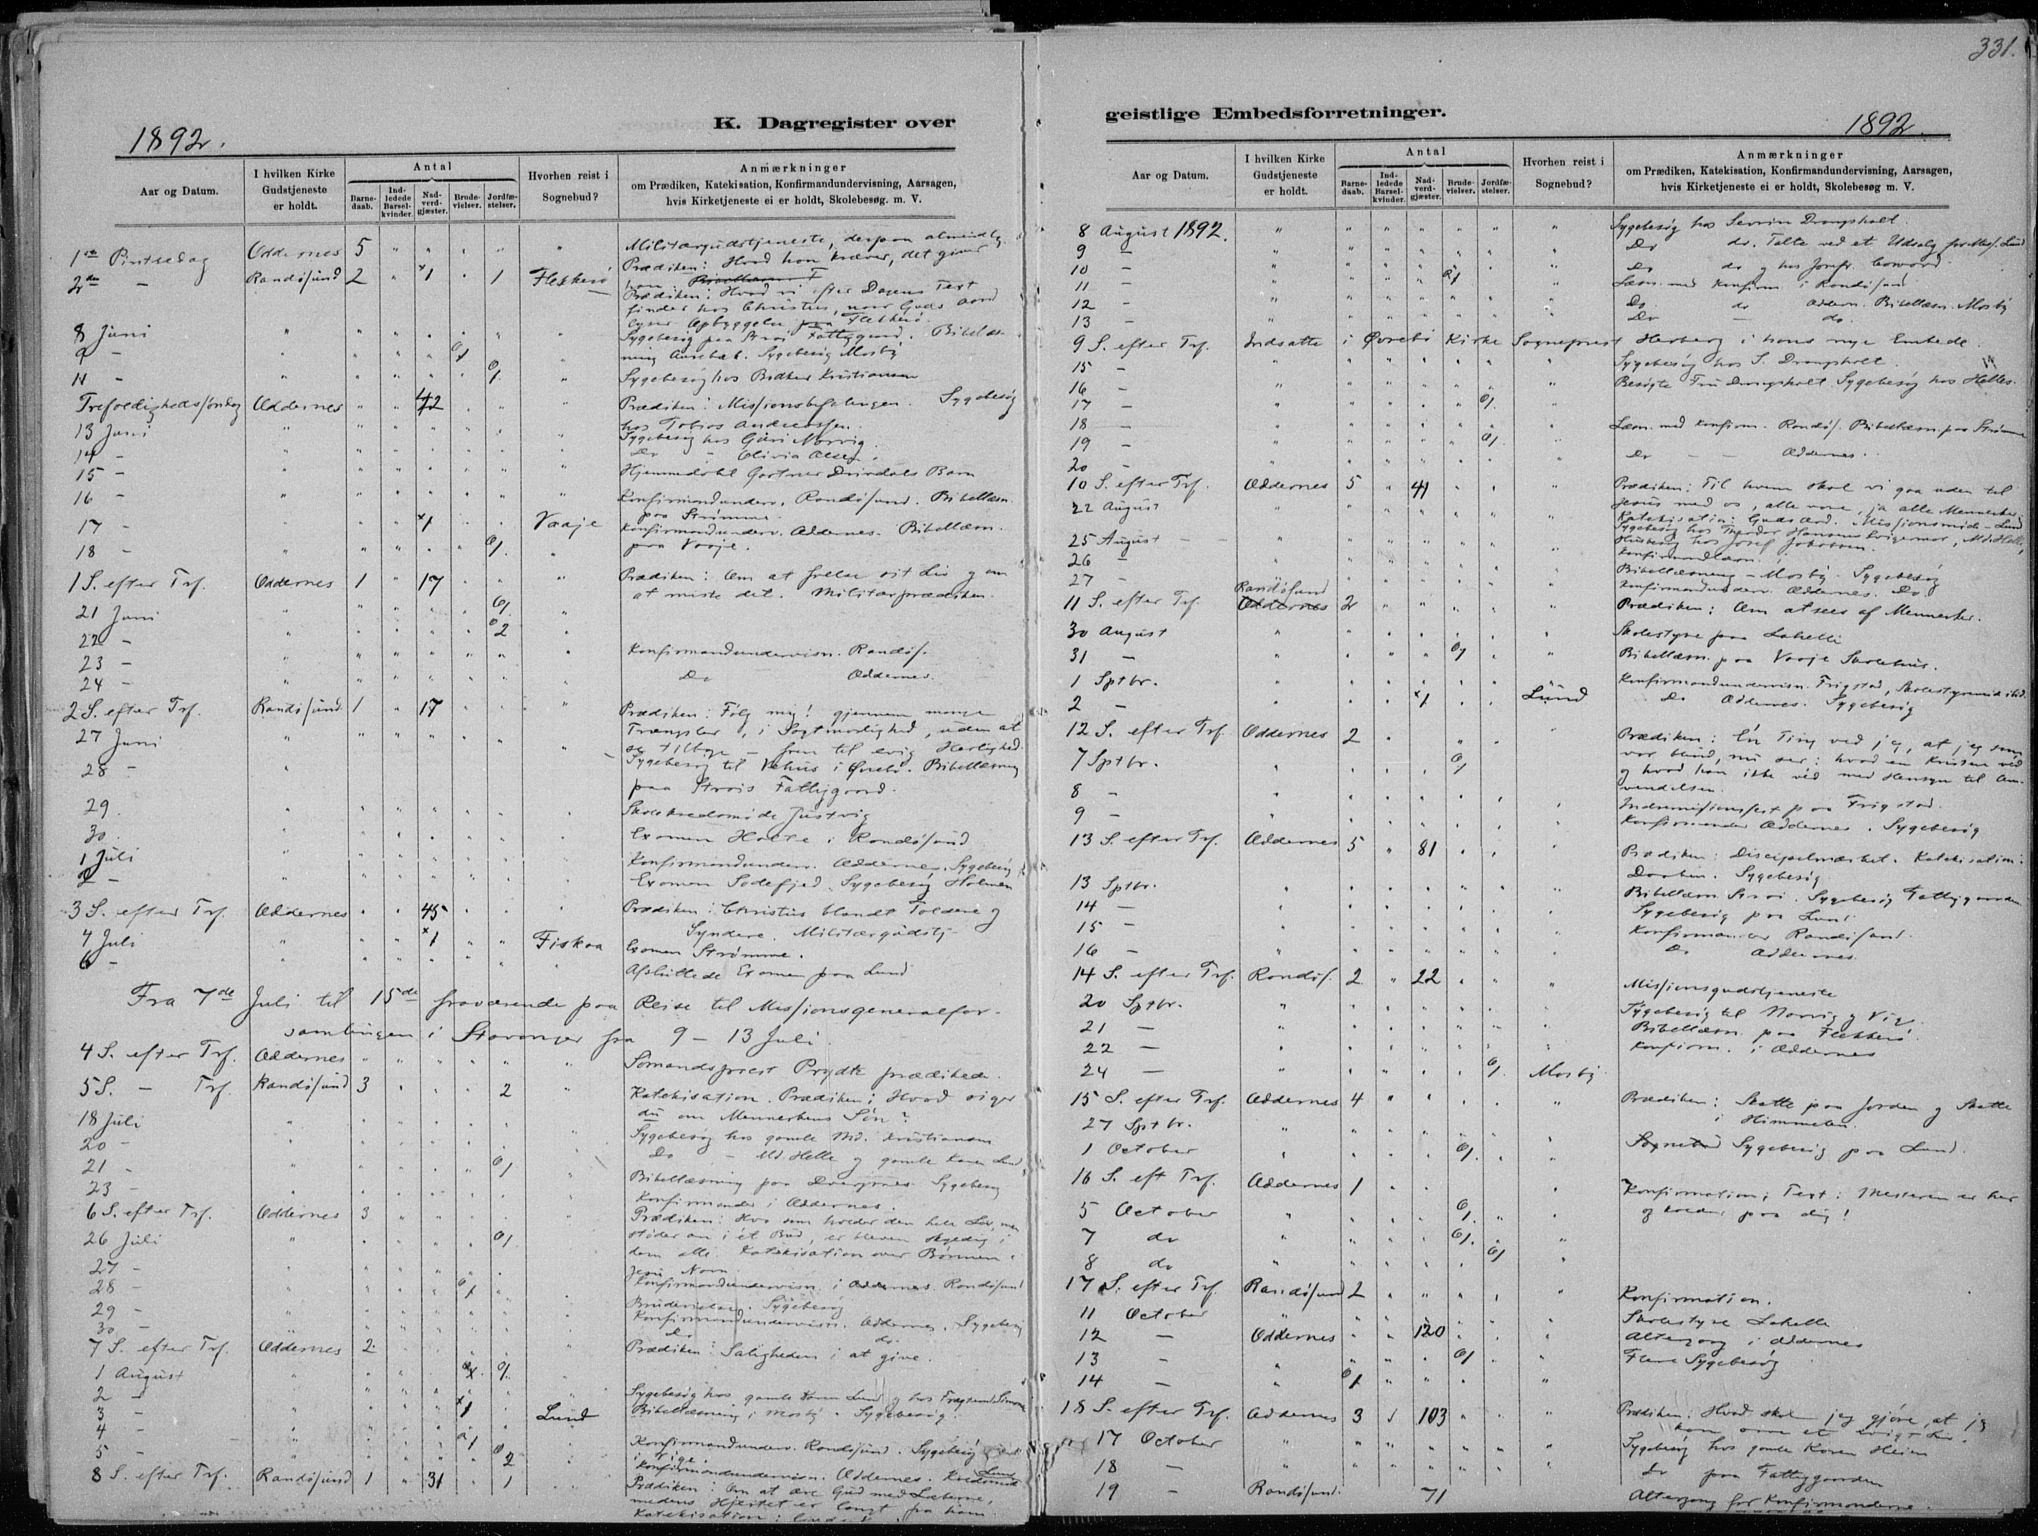 331.
1892.
K. Dagregister over
geistlige Embedsforretninger.
1892.
Aar og Datum.
I hvilken Kirke Gudstjeneste er holdt.
Antal
Barne-daab.
Ind-ledede Barsel-kvinder.
Nad-verd-gjæster.
Brude-vielser.
Jordfæ-stelser.
Hvorhen reist i Sognebud?
Anmærkninger
om Prædiken, Katekisation, Konfirmandundervisning, Aarsagen,
hvis Kirketjeneste ei er holdt, Skolebesøg. m. V.
1ste Pintsedag Oddernes 5 " " " " " Militærgudstjeneste, derpaa almindelig
Prædiken: Hvad han kræver, det giver
2den — Randøsund 2 " x1 " 1 Flekkerø han.
Prædiken: Hvad vi efter Dagens Text
finder hos Christus, naar Guds Aand
8 Juni
Sygebesøg paa Strøi Fattiggaard. Bibellæs-
9 — 0/1
ning Aurebæk. Sygebesøg Mosby
11 — 0/1 Sygebesøg hos Bødker Kristiansen
Trefoldighedssøndag Oddernes " " 42 Prædiken: Missionsbefalingen. Sygebesøg
13 Juni hos Tobias Andreassen.
14 — Do — Olivia Olsen.
15 — Hjemmedøbt Gartner Drivdals Barn
16 — Konfirmandunderv. Randøsund. Bibellæsn.
paa Strømme
17 — x1 Vaaje Konfirmandunderv. Oddernes. Bibellæsn.
18 — 0/1 paa Vaaje.
1 S. efter Trf. Oddernes 1 " 17 Prædiken: Om at frelse sit Liv og om
at miste det. Militærprædiken.
21 Juni 0/1
22 — 0/2
23 — Konfirmandundervisn. Randøs.
24 — Do Oddernes.
2 S. efter Trf. Randøsund 1 " 17 Prædiken: Følg mig! gjennem mange
27 Juni Trængsler, i Sagtmodighed, uden at
se tilbage — frem til evig Herlighed.
28 — Sygebesøg til Vehus i Øvrebø. Bibellæsning
paa Strøis Fattiggaard.
29. Skolekredsmøde Justvig
30. Examen Haare i Randøsund
1 Juli Konfirmandunderv. Oddernes. Sygebesøg
2 — Examen Sødefjed. Sygebesøg Holmen
3 S. efter Trf. Oddernes " " 45 Prædiken: Christus blandt Toldere og
Syndere. Militærgudstj.
4 Juli x1 Fiskaa Examen Strømme.
6 — Afsluttede Examen paa Lund
Fra 7de Juli til 15de fraværende paa Reise til Missionsgeneralfor-
samlingen i Stavanger fra 9 — 13 Juli.
4 S. efter Trf. Oddernes Sømandspræst Prydtz prædikede.
5 S. — Trf. Randøsund 3 2 Katekisation. Prædiken: Hvad siger
du om Menneskens Søn?
18 Juli
20 — Sygebesøg hos gamle Md. Kristiansen
21 — 0/1 Do — Md. Helle og gamle Karen Lund
23 — Bibellæsning paa Dvergsnes Sygebesøg
Konfirmander i Oddernes.
6 S. efter Trf. Oddernes 3 Prædiken: Hvo som holder den hele Lov, men
26 Juli 0/1 støder an i ét Bud, er bleven skyldig i
dem alle. Katekisation over Bønnen i
27 — Jesu Navn
28 — 0/1 Konfirmandundervisn. i Oddernes. Randøsund
29 — Brudevielse. Sygebesøg
30 — Konfirmandundervisn. Oddernes. Sygebesøg
Do do.
7 S. efter Trf. Oddernes 2 Prædiken: Saligheden i at give.
1 August 0/1
2 — Sygebesøg hos gamle Karen Lund og hos
3 — x1 Lund Bibellæsning i Mosby. Sygebesøg.
4 — 0/1
5 — 0/2 Konfirmandunderv. Randøsund. Sygebesøg
Konfirmandundervisn. Oddernes.
8 S. efter Trf. Randøsund 1 " 31 " 1 Prædiken: Om at ære Gud med Læberne,
medens Hjertet er langt fra ham.
Katekisation:
Aar og Datum.
I hvilken Kirke Gudstjeneste er holdt.
Antal
Barne-daab.
Ind-ledede Barsel-kvinder.
Nad-verd-gjæster.
Brude-vielser.
Jordfæ-stelser.
Hvorhen reist i Sognebud?
Anmærkninger
om Prædiken, Katekisation, Konfirmandundervisning, Aarsagen,
hvis Kirketjeneste ei er holdt, Skolebesøg m. V.
8 August 1892. Sygebesøg hos Severin Drangsholt.
9 — Do do. Talte ved et Udsalg for Miss. Lund
10 — Do do og hos Jomfr.
11 — 0/1 Læsn. med Konfirm. i Randøsund
12 — Do do Oddern. Bibellæsn. Mosby
13 — Do — do.
9 S. efter Trf. Indsatte i Øvrebø Kirke Sogneprest Herberg i hans nye Embede.
15 — Sygebesøg hos S. Drangsholt.
16 — Besøgte Fru Drangsholt Sygebesøg hos Helles.
17 — 0/1
18 — Læsn. med Konfirm. Randøs. Bibellæsn. paa Strømme
19 — 0/1
20 — Do — — Oddernes.
10 S. efter Trf. Oddernes 5 " 41 Prædiken: Til hvem skal vi gaa uden til
22 August Jesus med os, alle vore, ja alle Mennesker.
Katekisation: Guds Ord. Missionsmøde - Lund
25 August — — Husbesøg hos Josef Jakobsen.
26 — Konfirmandlæsn.
27 — Bibellæsning — Mosby. Sygebesøg
Randøsund Konfirmandunderv. Oddernes. Do
11 S. efter Trf. Oddernes 2 Prædiken: Om at sees af Mennesker.
30 August Skolestyre paa Lahelle
31 — 0/1 Bibellæsn. paa Vaaje Skolehus.
1 Sptbr. Konfirmandundervisn. Frigstad, Skolestyremøde ibid
2 — x1 Lund Do Oddernes. Sygebesøg
12 S. efter Trf. Oddernes 2 Prædiken: Én Ting ved jeg, at jeg som
7 Sptbr. 0/1 var blind, nu ser: hvad en Kristen véd
og hvad han ikke véd med Hensyn til Om-
8 — vendelsen.
9 — Indremissionsfest paa Frigstad.
Konfirmander Oddernes. Sygebesøg
13 S. efter Trf. Oddernes 5 " 81 Prædiken: Discipelmærket. Katekisation:
13 Sptbr. Daaben. Sygebesøg
14 — Bibellæsn. Strøi. Sygebesøg Fattiggaarden
15 — Sygebesøg paa Lund
16 — Konfirmander Randøsund.
Do Oddernes.
14 S. efter Trf. Randøs. 2 " 22 Missionsgudstjeneste
20 Sptbr. Sygebesøg til Norvig og Vig.
21 — Bibellæsn. paa Flekkerø
22 — Konfirm. i Oddernes
24 — 0/1 Mosby
15 S. efter Trf. Oddernes 4 Prædiken: Skatte paa Jorden og Skatte
27 Sptbr. i Himmelen.
1 October 0/1 Sognebud Sygebesøg paa Lund.
16 S. eft Trf. Oddernes 1 Konfirmation; Text: Mesteren er her
5 October 0/1 og kalder paa dig!
7 do 0/1
8 do 0/1
17 S. efter Trf. Randøsund 2 Konfirmation.
11 October Skolestyre Lahelle
12 — Oddernes " " 120 Altergang i Oddernes
13 — 0/1 Flere Sygebesøg
14 — 0/1
18 S. efter Trf. Oddernes 3 1 103 Prædiken: Hvad skal jeg gjøre, at jeg
17 October kan arve et evigt Liv.
Sygebesøg hos gamle Karen Heien
18 — Do paa Fattiggaarden
19 — Randøsund. 71 Altergang for Konfirmanderne.